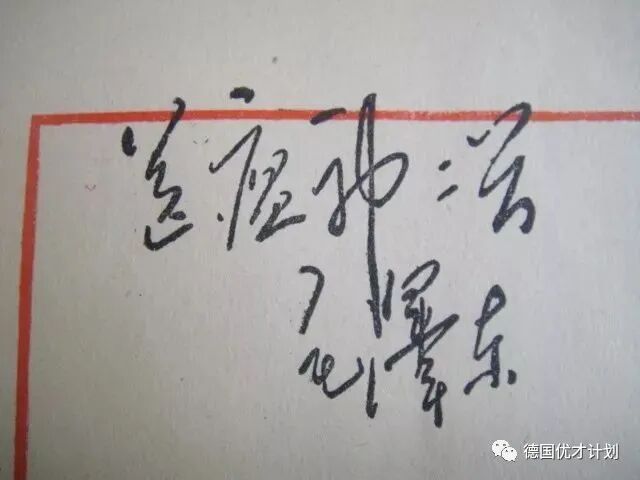 送瘟神二首
毛泽东
德国优才计划